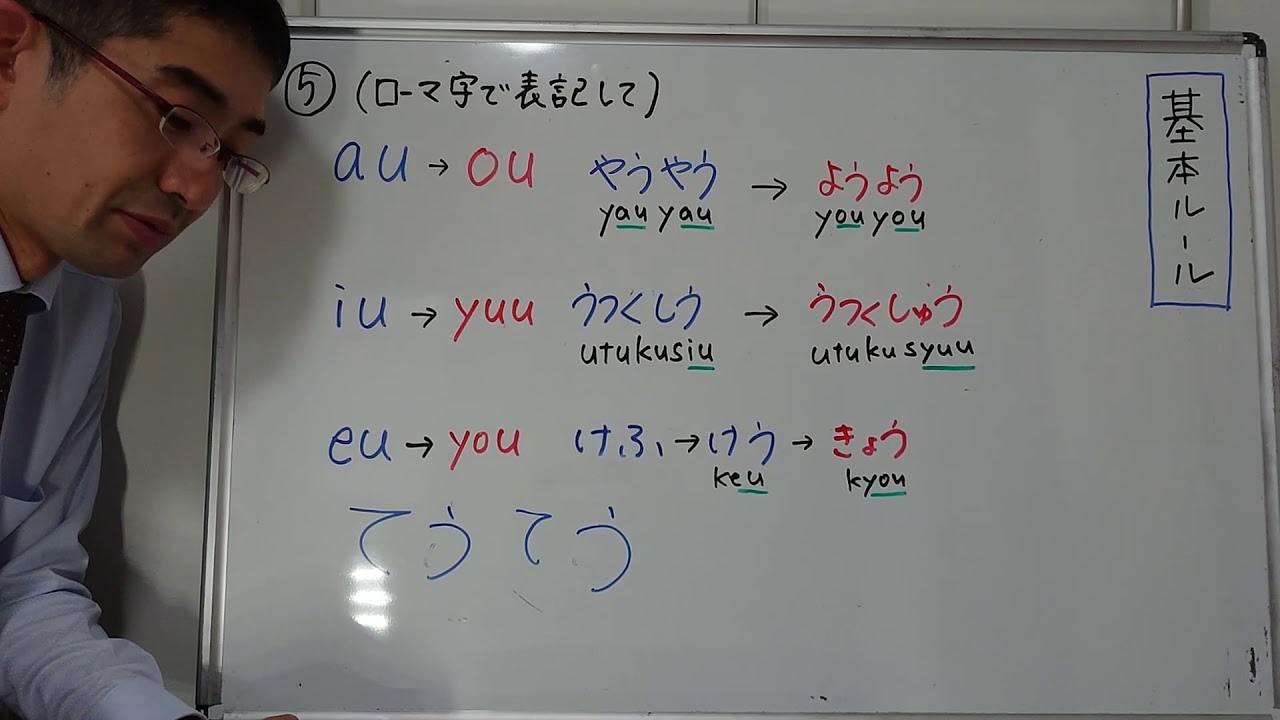 ⑤ (ローマ字で表記して)
au → ou やうやう → ようよう
yau yau youyou
iu → yuu うつくしう → うつくしゅう
utukusiu utukusyuu
eu → you けふ → けう → きょう
keu kyou
てうてう
基本ルール